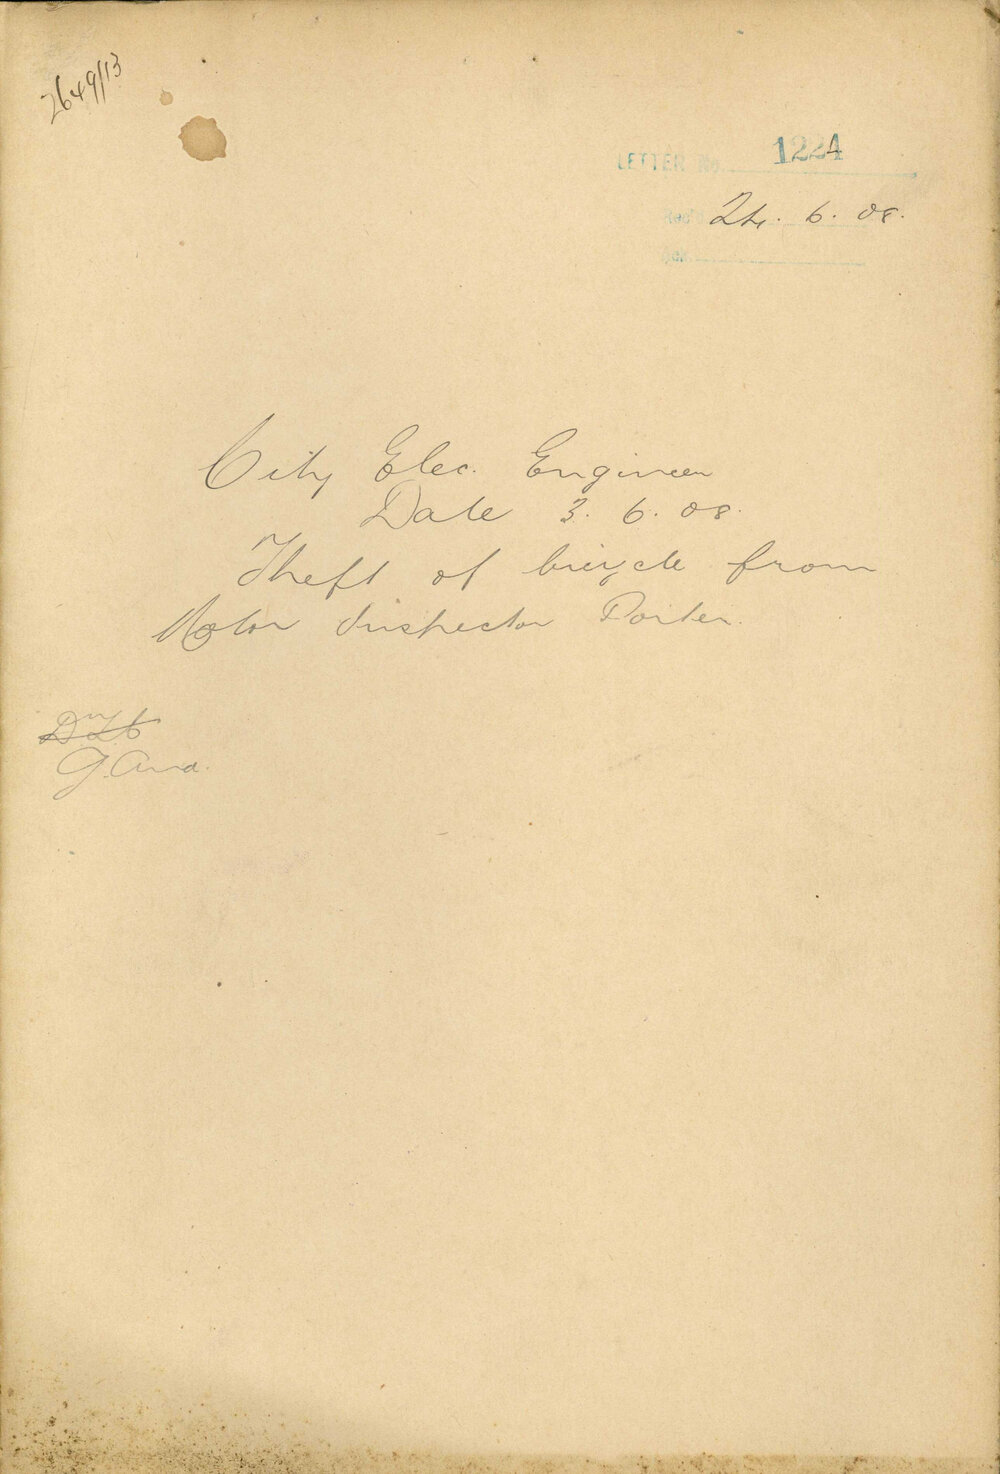 2649/13
LETTER No. 1224
Rec'd 24. 6. 08.
City Elec. Engineer
Date 3. 6. 08.
Theft of bicycle from
Motor Inspector Porter.